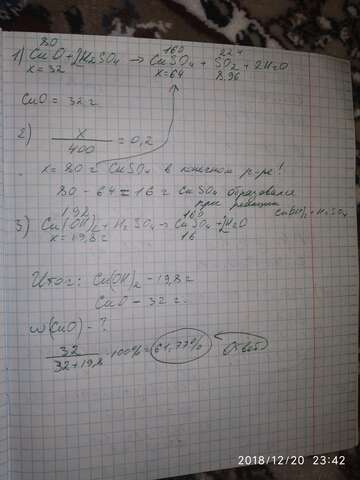 80 160 22,4
1) CuO + 2H2SO4 → CuSO4 + SO2 + 2H2O
x = 32 x = 64 8,96
CuO = 32 г
2) x/400 = 0,2
x = 80 г CuSO4 в конечном р-ре!
80 - 64 = 16 г CuSO4 образовался
при реакции Cu(OH)2 + H2SO4
160
3) Cu(OH)2 + H2SO4 → CuSO4 + 2H2O
x = 19,6 г 16
Итог: Cu(OH)2 - 19,8 г
CuO - 32 г
w(CuO) - ?
32/32+19,8 · 100% = 61,77% Ответ
2018/12/20 23:42